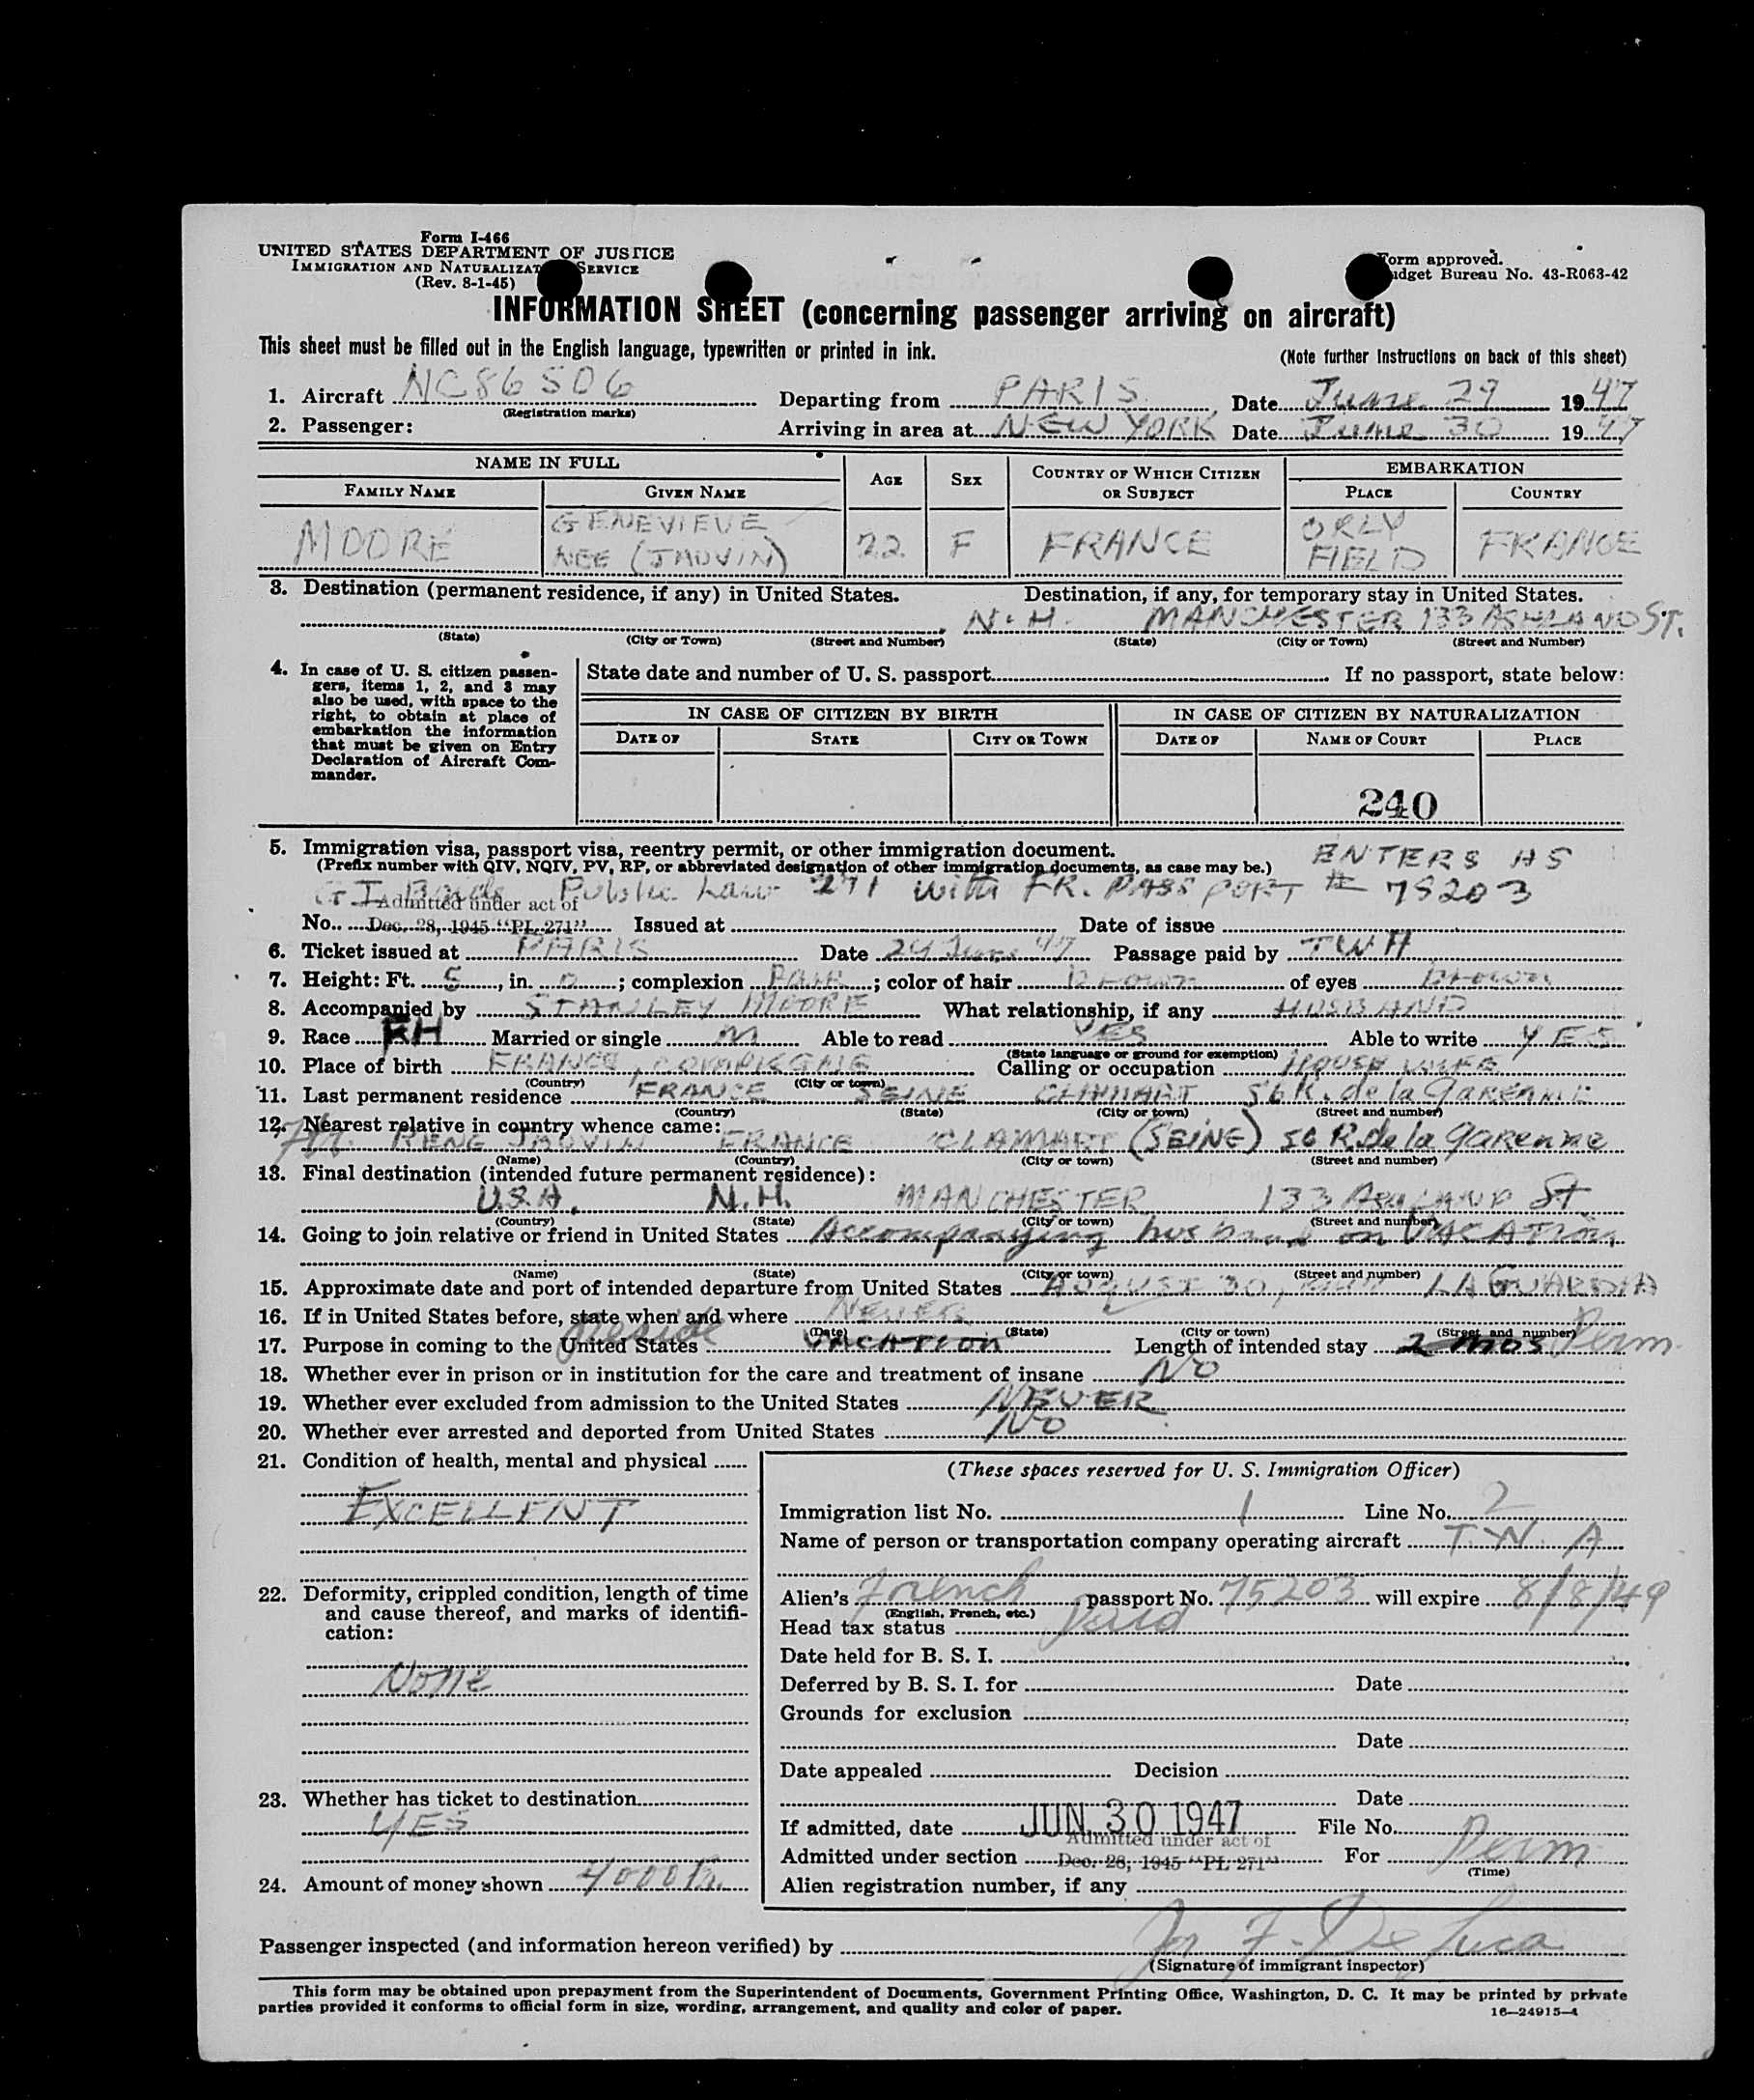 Form I-466
UNITED STATES DEPARTMENT OF JUSTICE
IMMIGRATION AND NATURALIZAT SERVICE
(Rev. 8-1-45)
Form approved.
udget Bureau No. 43-R063-42
INFORMATION SHEET (concerning passenger arriving on aircraft)
This sheet must be filled out in the English language, typewritten or printed in ink.
(Note further instructions on back of this sheet)
1. Aircraft NC86506 Departing from PARIS Date June 29 1947
(Registration marks)
2. Passenger: Arriving in area at NEW YORK Date June 30 1947
NAME IN FULL AGE SEX COUNTRY OF WHICH CITIZEN OR SUBJECT EMBARKATION
FAMILY NAME GIVEN NAME PLACE COUNTRY
MOORE GENEVIEVE NEE (JAUVIN) 22 F FRANCE ORLY FIELD FRANCE
3. Destination (permanent residence, if any) in United States. Destination, if any, for temporary stay in United States.
N.H. MANCHESTER 133 ASHLAND ST.
(State) (City or Town) (Street and Number) (State) (City or Town) (Street and Number)
4. In case of U. S. citizen passengers, items 1, 2, and 3 may also be used, with space to the right, to obtain at place of embarkation the information that must be given on Entry Declaration of Aircraft Commander.
State date and number of U. S. passport If no passport, state below:
IN CASE OF CITIZEN BY BIRTH IN CASE OF CITIZEN BY NATURALIZATION
DATE OF STATE CITY OR TOWN DATE OF NAME OF COURT PLACE
240
5. Immigration visa, passport visa, reentry permit, or other immigration document.
(Prefix number with QIV, NQIV, PV, RP, or abbreviated designation of other immigration documents, as case may be.) ENTERS AS
GI Bride Public Law 271 with FR. PASSPORT # 75203
Admitted under act of
No. Dec. 28, 1945 "PL 271" Issued at Date of issue
6. Ticket issued at PARIS Date 29 June 47 Passage paid by TWA
7. Height: Ft. 5, in. 0; complexion PALE; color of hair Brown of eyes Brown
8. Accompanied by STANLEY MOORE What relationship, if any HUSBAND
9. Race Married or single M Able to read YES Able to write YES
(State language or ground for exemption)
10. Place of birth FRANCE, Calling or occupation HOUSE WIFE
(Country) (City or town)
11. Last permanent residence FRANCE SEINE CLAMART 56 R. de la Garenne
(Country) (State) (City or town) (Street and number)
12. Nearest relative in country whence came:
RENE JAUVIN FRANCE CLAMART (SEINE) 56 R. de la Garenne
(Name) (Country) (City or town) (Street and number)
13. Final destination (intended future permanent residence):
U.S.A. N.H. MANCHESTER 133 ASHLAND St
(Country) (State) (City or town) (Street and number)
14. Going to join relative or friend in United States Accompanying husband on VACATION
(Name) (State) (City or town) (Street and number)
15. Approximate date and port of intended departure from United States AUGUST 30, LAGUARDIA
16. If in United States before, state when and where NEVER
(Date) (State) (City or town) (Street and number)
17. Purpose in coming to the United States reside VACATION Length of intended stay 2 mos Perm
18. Whether ever in prison or in institution for the care and treatment of insane NO
19. Whether ever excluded from admission to the United States NEVER
20. Whether ever arrested and deported from United States NO
21. Condition of health, mental and physical
EXCELLENT
22. Deformity, crippled condition, length of time and cause thereof, and marks of identification:
None
23. Whether has ticket to destination
YES
24. Amount of money shown 4000 Fr.
(These spaces reserved for U. S. Immigration Officer)
Immigration list No. 1 Line No. 2
Name of person or transportation company operating aircraft T.W.A
Alien's French passport No. 75203 will expire 8/8/49
(English, French, etc.)
Head tax status paid
Date held for B. S. I.
Deferred by B. S. I. for Date
Grounds for exclusion
Date
Date appealed Decision
Date
If admitted, date JUN 30 1947 File No.
Admitted under act of
Admitted under section Dec. 28, 1945 "PL 271" For Perm
(Time)
Alien registration number, if any
Passenger inspected (and information hereon verified) by F. De Luca
(Signature of immigrant inspector)
This form may be obtained upon prepayment from the Superintendent of Documents, Government Printing Office, Washington, D. C. It may be printed by private
parties provided it conforms to official form in size, wording, arrangement, and quality and color of paper.
16—24915-4